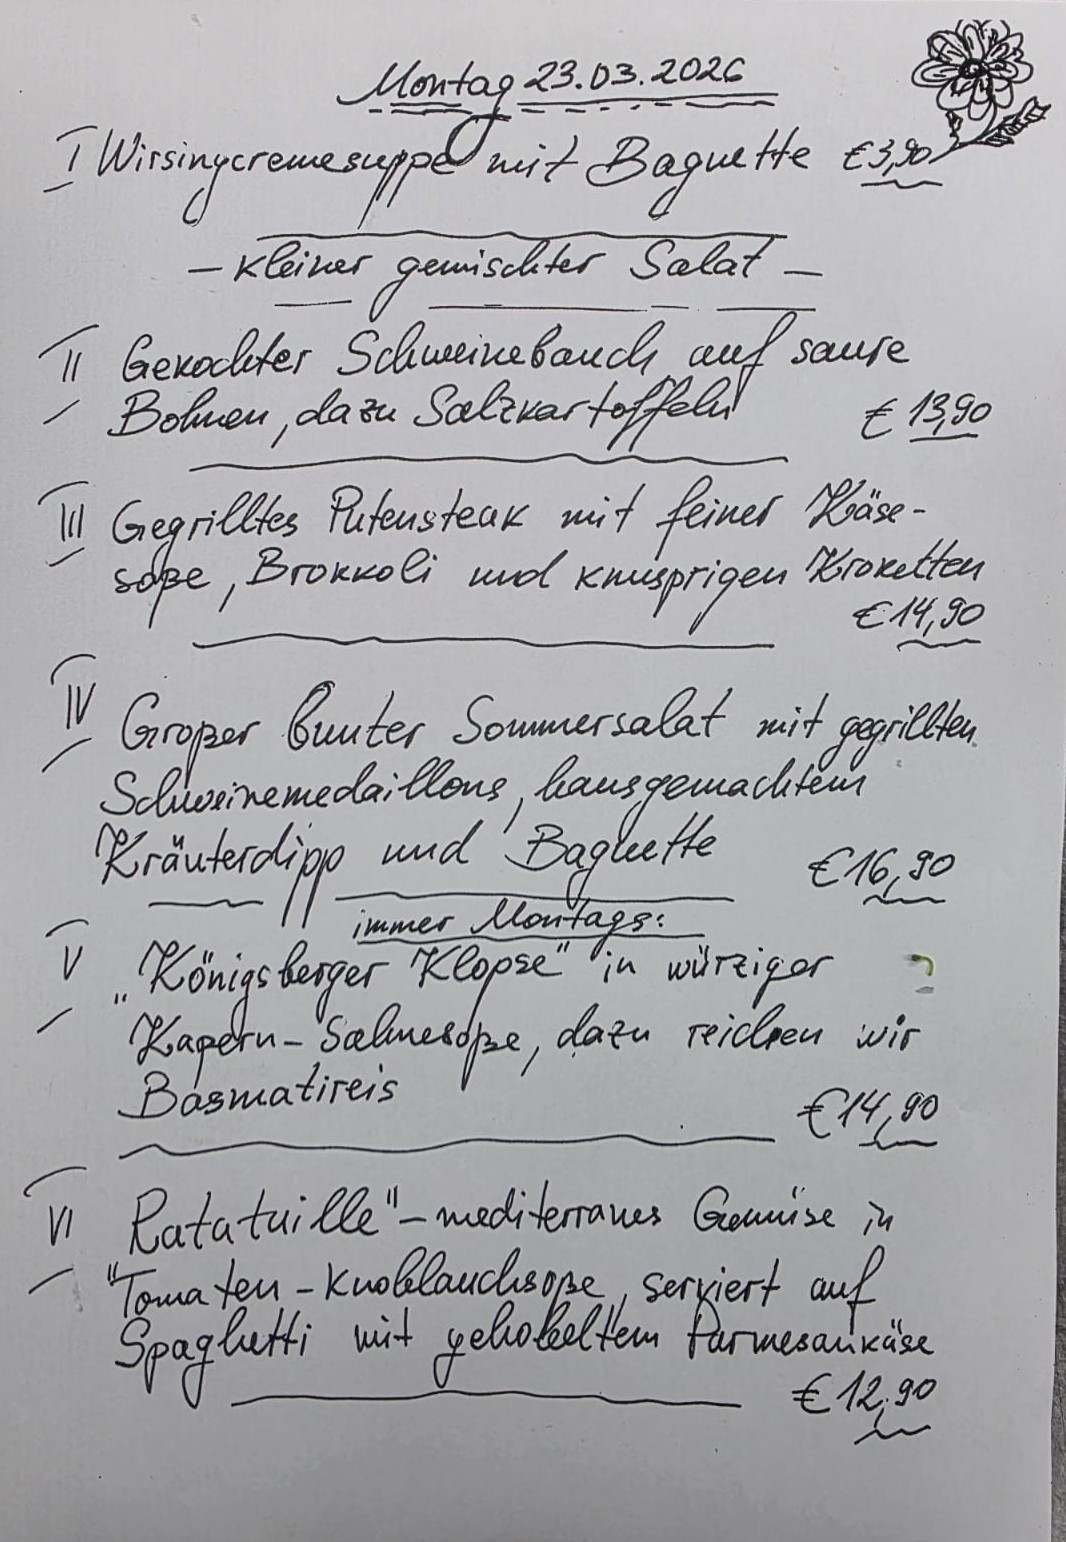 Montag 23.03.2026
I Wirsingcremesuppe mit Baguette €3,90
- kleiner gemischter Salat -
II Gekochter Schweinebauch auf saure
Bohnen, dazu Salzkartoffeln € 13,90
III Gegrilltes Putensteak mit feiner Käse-
soße, Brokkoli und knusprigen Kroketten
€14,90
IV Großer bunter Sommersalat mit gegrillten
Schweinemedaillons, hausgemachtem
Kräuterdipp und Baguette €16,90
immer Montags:
V „Königsberger Klopse" in würziger
Kapern-Sahnesoße, dazu reichen wir
Basmatireis €14,90
VI „Ratatuille" - mediterranes Gemüse in
Tomaten-Knoblauchsoße, serviert auf
Spaghetti mit gehobeltem Parmesankäse
€12,90